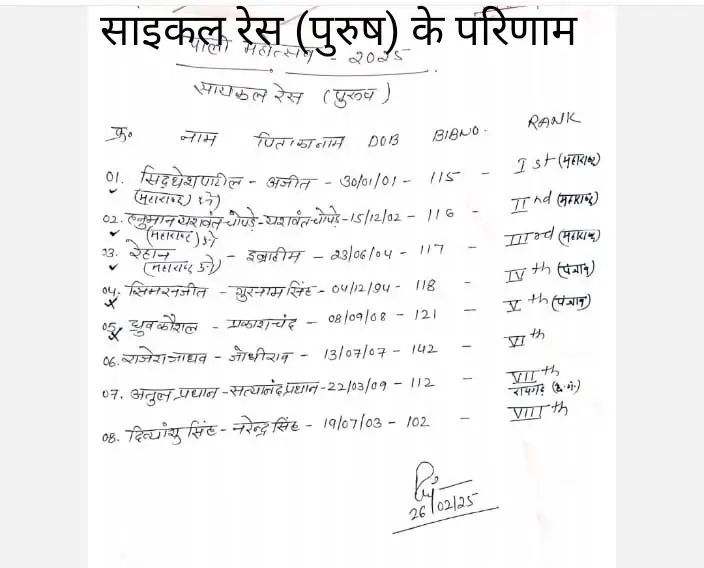 साइकल रेस (पुरुष) के परिणाम
पाली महोत्सव - 2025
सायकल रेस (पुरुष)
क्र० नाम पिता का नाम DOB BIBNO. RANK
01. सिद्धेश पाटील - अजीत - 30/01/01 - 115 - I st (महाराष्ट्र)
(महाराष्ट्र) पुने
02. हनुमान यशवंत चोपडे - यशवंत चोपडे - 15/12/02 - 116 - II nd (महाराष्ट्र)
(महाराष्ट्र) पुने
03. रेहान - इब्राहीम - 23/06/04 - 117 - III rd (महाराष्ट्र)
(महाराष्ट्र पुने)
04. सिमरनजीत - गुरनाम सिंह - 04/12/94 - 118 - IV th (पंजाब)
05. ध्रुव कौशल - प्रकाश चंद - 08/09/08 - 121 - V th (पंजाब)
06. राजेश जाधव - जोधीराव - 13/07/07 - 142 - VI th
07. अतुल प्रधान - सत्यानंद प्रधान - 22/03/09 - 112 - VII th
रायगढ़ (छ.ग.)
08. दिव्यांशु सिंह - नरेन्द्र सिंह - 19/07/03 - 102 - VIII th
26/02/25